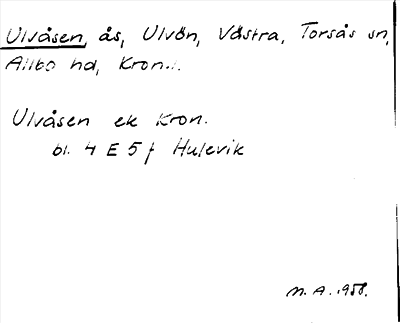 Ulvåsen, ås, Ulvön, Västra, Torsås sn,
Allbo hd, Kron.
Ulvåsen ek Kron.
bl. 4 E 5 f Hulevik
M. A. 1958.